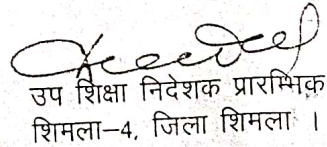 उप शिक्षा निदेशक प्रारम्भिक
शिमला-4, जिला शिमला ।